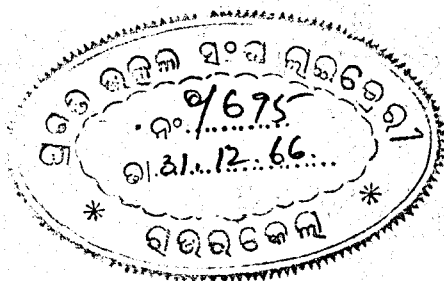 ଉତ୍କଳ ସଂଘ ଲାଇବ୍ରେରୀ
ନଂ...1695
ତା.31..12.66..
* ରାଉରକେଲା *